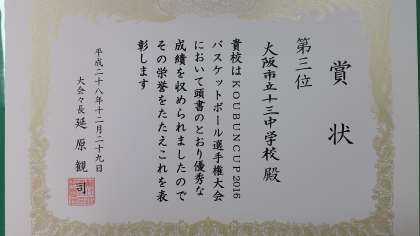 賞状
第三位
大阪市立十三中学校 殿
貴校はKOUBUNCUP2016
バスケットボール選手権大会
において頭書のとおり優秀な
成績を収められましたので
その栄誉をたたえこれを表
彰します
平成二十八年十二月二十九日
大会々長 延原 観司